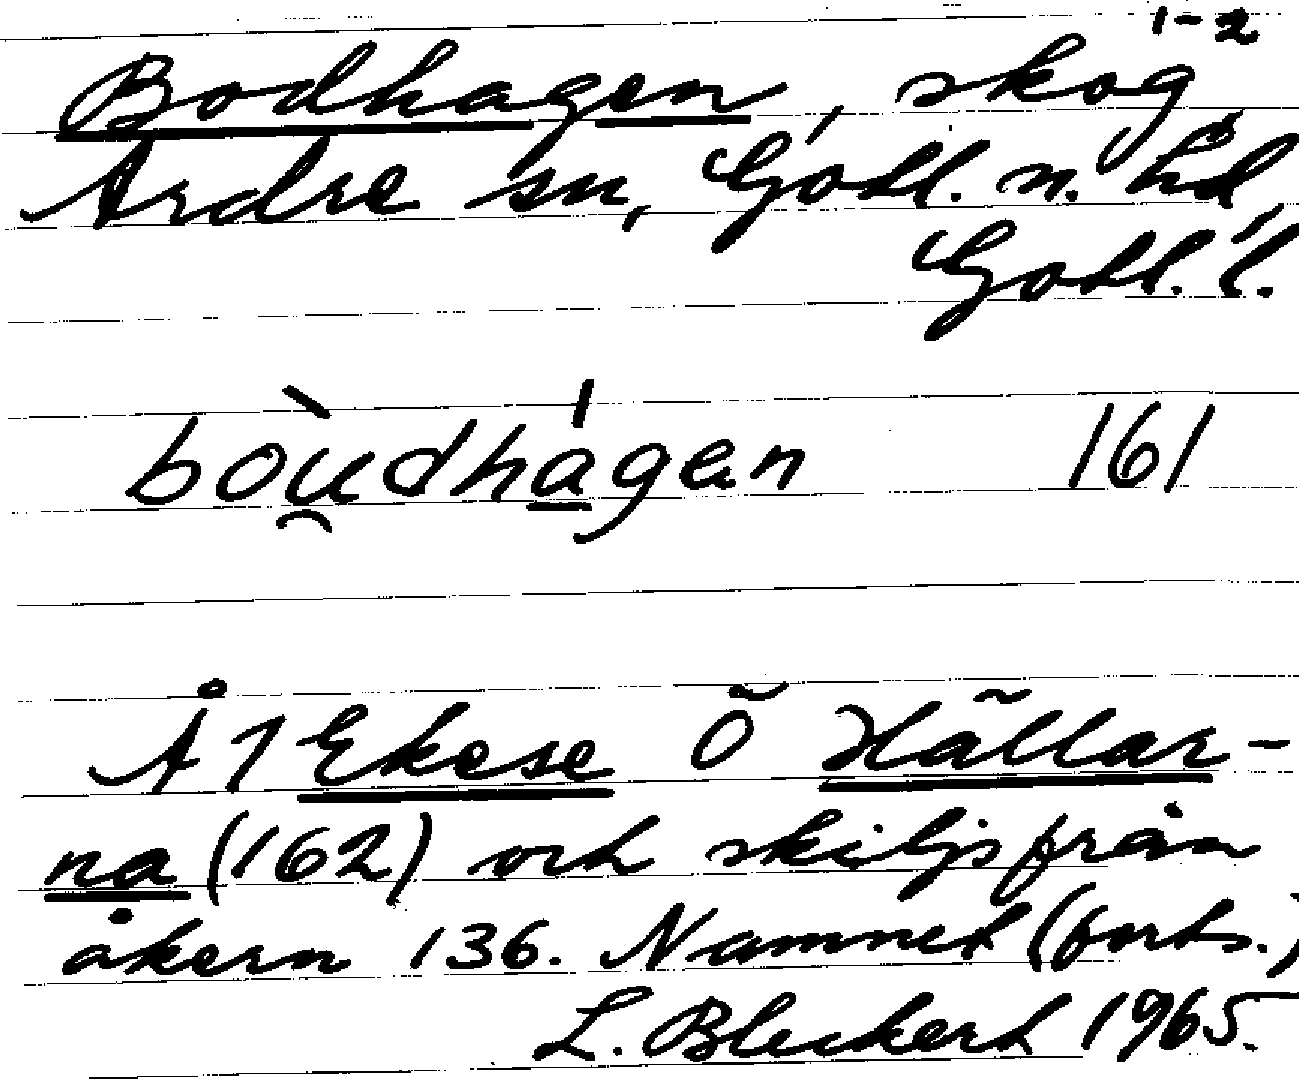 1-2
Bodhagen, skog
Ardre sn, Gotl. n. hd,
Gotl. l.
bòu̯dhágen 161
Å 1 Ekese Ö Hällar-
na (162) och skiljs från
åkern 136. Namnet (forts.)
L. Bleckert 1965.